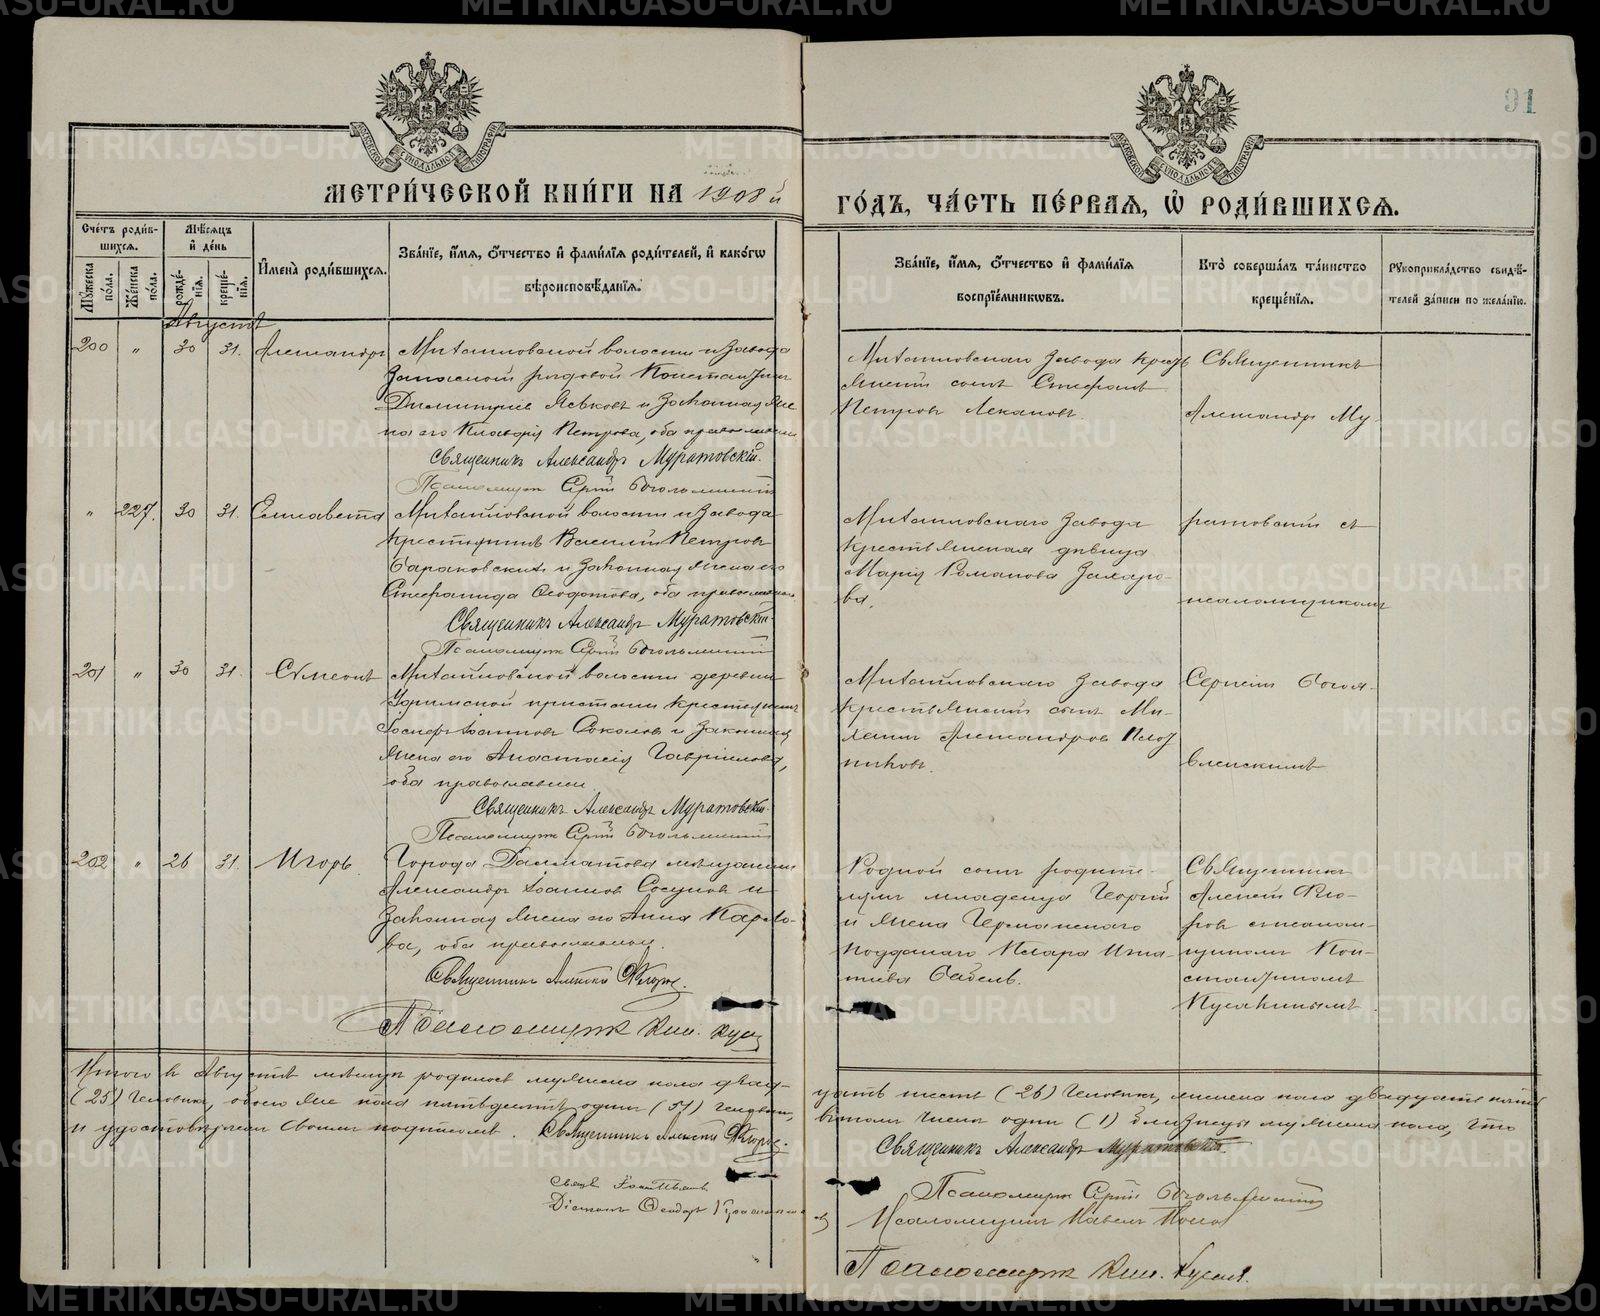 91
МЕТРИ́ЧЕСКОЙ КНИ́ГИ НА 1908 й
ГО́ДЪ, ЧА́СТЬ ПЕ́РВАЯ, Ѡ҆ РОДИ́ВШИХСЯ.
Сче́тъ роди́в-
шихся.
Мѣ́сяцъ
и҆ де́нь
Му́жеска по́ла.
Же́нска по́ла.
рожде́-
нїя.
креще́-
нїя.
И҆мена̀ роди́вшихся.
Зва́нїе, и҆́мя, ѻ҆́тчество и҆ фами́лїя роди́телей, и҆ како́гѡ
вѣроисповѣ́данїя.
Зва́нїе, и҆́мя, ѻ҆́тчество и҆ фами́лїя
воспрїе́мникѡвъ.
Кто̀ соверша́лъ та́инство
креще́нїя.
Рукоприкла́дство свидѣ́-
телей за́писи по жела́нїю.
Августъ
200 „ 30 31. Александръ
Михайловской волости и завода
запасной рядовой Константинъ
Димитріевъ Язьковъ и законная же
на его Клавдія Петрова, оба православные
Священникъ Александръ Муратовскій.
Псаломщикъ Сергій Боголюбскій
Михайловскаго завода кресть
янскій сынъ Стефанъ
Петровъ Лекановъ.
Священникъ
Александръ Му-
„ 227. 30 31. Елисавета
Михайловской волости и завода
крестьянинъ Василій Петровъ
и законная жена его
Стефанида Ѳеодотова, оба православные
Священникъ Александръ Муратовскій
Псаломщикъ Сергій
Михайловскаго завода
крестьянская дѣвица
Марія Романова Захаро-
ва.
ратовскій съ
псаломщикомъ
201 „ 30 31. Сѵмеонъ
Михайловской волости деревни
Уфимской пристани крестьянинъ
Іоанновъ Соколовъ и законная
жена его Анастасія Гавріилова,
оба православные
Священникъ Александръ Муратовскій
Псаломщикъ Сергій
Михайловскаго завода
крестьянскій сынъ Ми-
хаилъ Александровъ Плот
никовъ.
Сергіемъ Богоя-
вленскимъ
202 „ 26 31. Игорь.
Города Далматова мѣщанинъ
Александръ Іоанновъ Сосуновъ и
законная жена его Анна Карло-
ва, оба православные.
Священникъ Алексій Флоровъ.
Псаломщикъ Кон. Кусак
Родной сынъ родите-
лей младенца Георгій
и жена Германскаго
подданаго Клара Игна-
тіева Бабель.
Священникъ
Алексій Фло-
ровъ съ псалом-
щикомъ Кон-
стантиномъ
Кусакинымъ.
Итого въ Августѣ мѣсяцѣ родилось мужеска пола двад-
цать шесть (26) человѣкъ, женска пола двадцать пять
(25) человѣкъ, обоего же пола пятьдесятъ одинъ (51) человѣкъ,
въ томъ числѣ одни (1) близнецы мужеска пола, что
и удостовѣряемъ своимъ подписомъ. Священникъ Алексій Флоровъ.
Священникъ Александръ Муратовскій.
Псаломщикъ Сергій
Діаконъ Ѳеодоръ
Псаломщикъ Павелъ Попов
Псаломщикъ Кон. Кусак